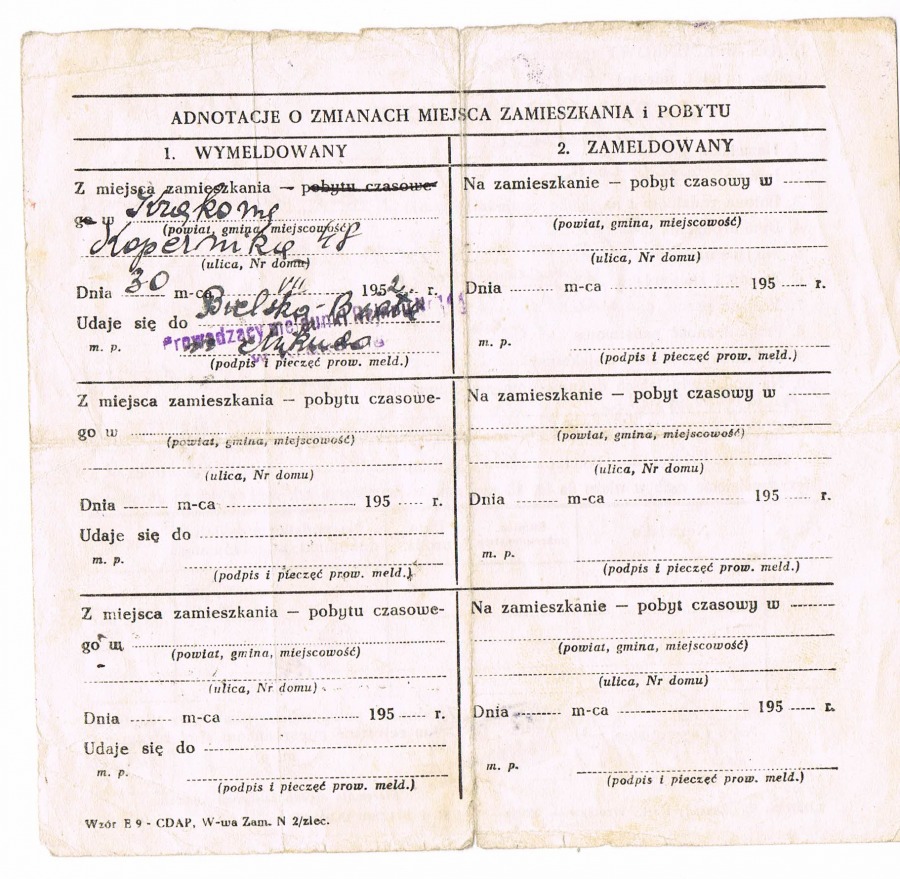 ADNOTACJE O ZMIANACH MIEJSCA ZAMIESZKANIA i POBYTU
1. WYMELDOWANY
Z miejsca zamieszkania — pobytu czasowe-
go w Krakowie
(powiat, gmina, miejscowość)
Kopernika 48
(ulica, Nr domu)
Dnia 30 m-ca VII 1952 r.
Udaje się do Bielsko-Biała
Prowadzący meldunki
m. p.
(podpis i pieczęć prow. meld.)
Z miejsca zamieszkania — pobytu czasowe-
go w
(powiat, gmina, miejscowość)
(ulica, Nr domu)
Dnia m-ca 195 r.
Udaje się do
m. p.
(podpis i pieczęć prow. meld.)
Z miejsca zamieszkania — pobytu czasowe-
go w
(powiat, gmina, miejscowość)
(ulica, Nr domu)
Dnia m-ca 195 r.
Udaje się do
m. p.
(podpis i pieczęć prow. meld.)
Wzór E 9 - CDAP, W-wa Zam. N 2/zlec.
2. ZAMELDOWANY
Na zamieszkanie — pobyt czasowy w
(powiat, gmina, miejscowość)
(ulica, Nr domu)
Dnia m-ca 195 r.
m. p.
(podpis i pieczęć prow. meld.)
Na zamieszkanie — pobyt czasowy w
(powiat, gmina, miejscowość)
(ulica, Nr domu)
Dnia m-ca 195 r.
m. p.
(podpis i pieczęć prow. meld.)
Na zamieszkanie — pobyt czasowy w
(powiat, gmina, miejscowość)
(ulica, Nr domu)
Dnia m-ca 195 r.
m. p.
(podpis i pieczęć prow. meld.)